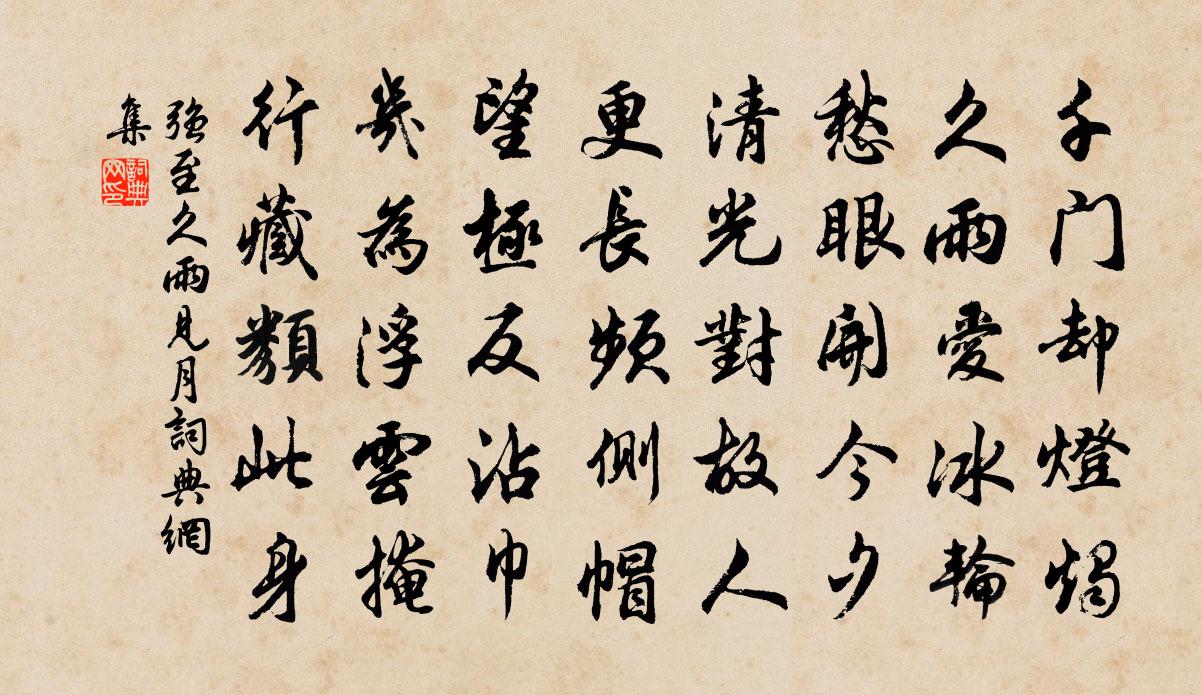 千门却燈燭
久雨愛冰輪
愁眼開今夕
清光對故人
更長頻側帽
望極反沾巾
幾為浮雲掩
行藏類此身
強至久雨見月詞典網
集
詞典
网印